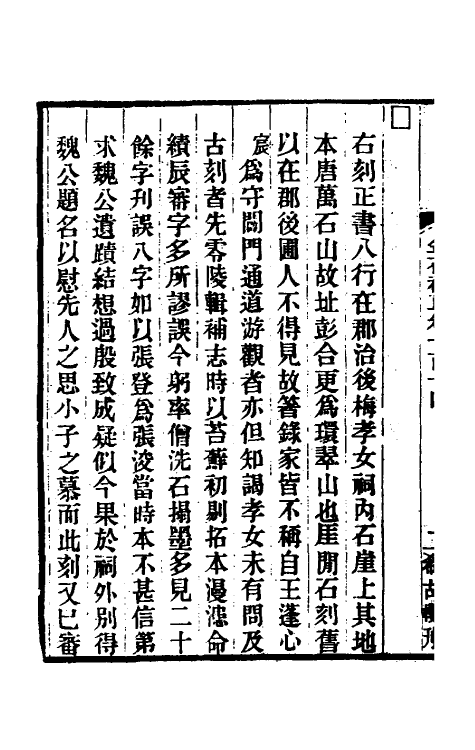 □
右刻正書八行在郡治後梅孝女祠內石崖上其地
本唐萬石山故址彭合更爲環翠山也厓閒石刻舊
以在郡後圃人不得見故著錄家皆不稱自王蓬心
宸爲守閭門通道游觀者亦但知謁孝女未有問及
古刻者先零陵輯補志時以苔蘚初剔拓本漫漶命
績辰審字多所謬誤今躬率僧洗石搨墨多見二十
餘字刋誤八字如以張登爲張浚當時本不甚信第
求魏公遺蹟結想過殷致成疑似今果於祠外別得
魏公題名以慰先人之思小子之慕而此刻又巳審